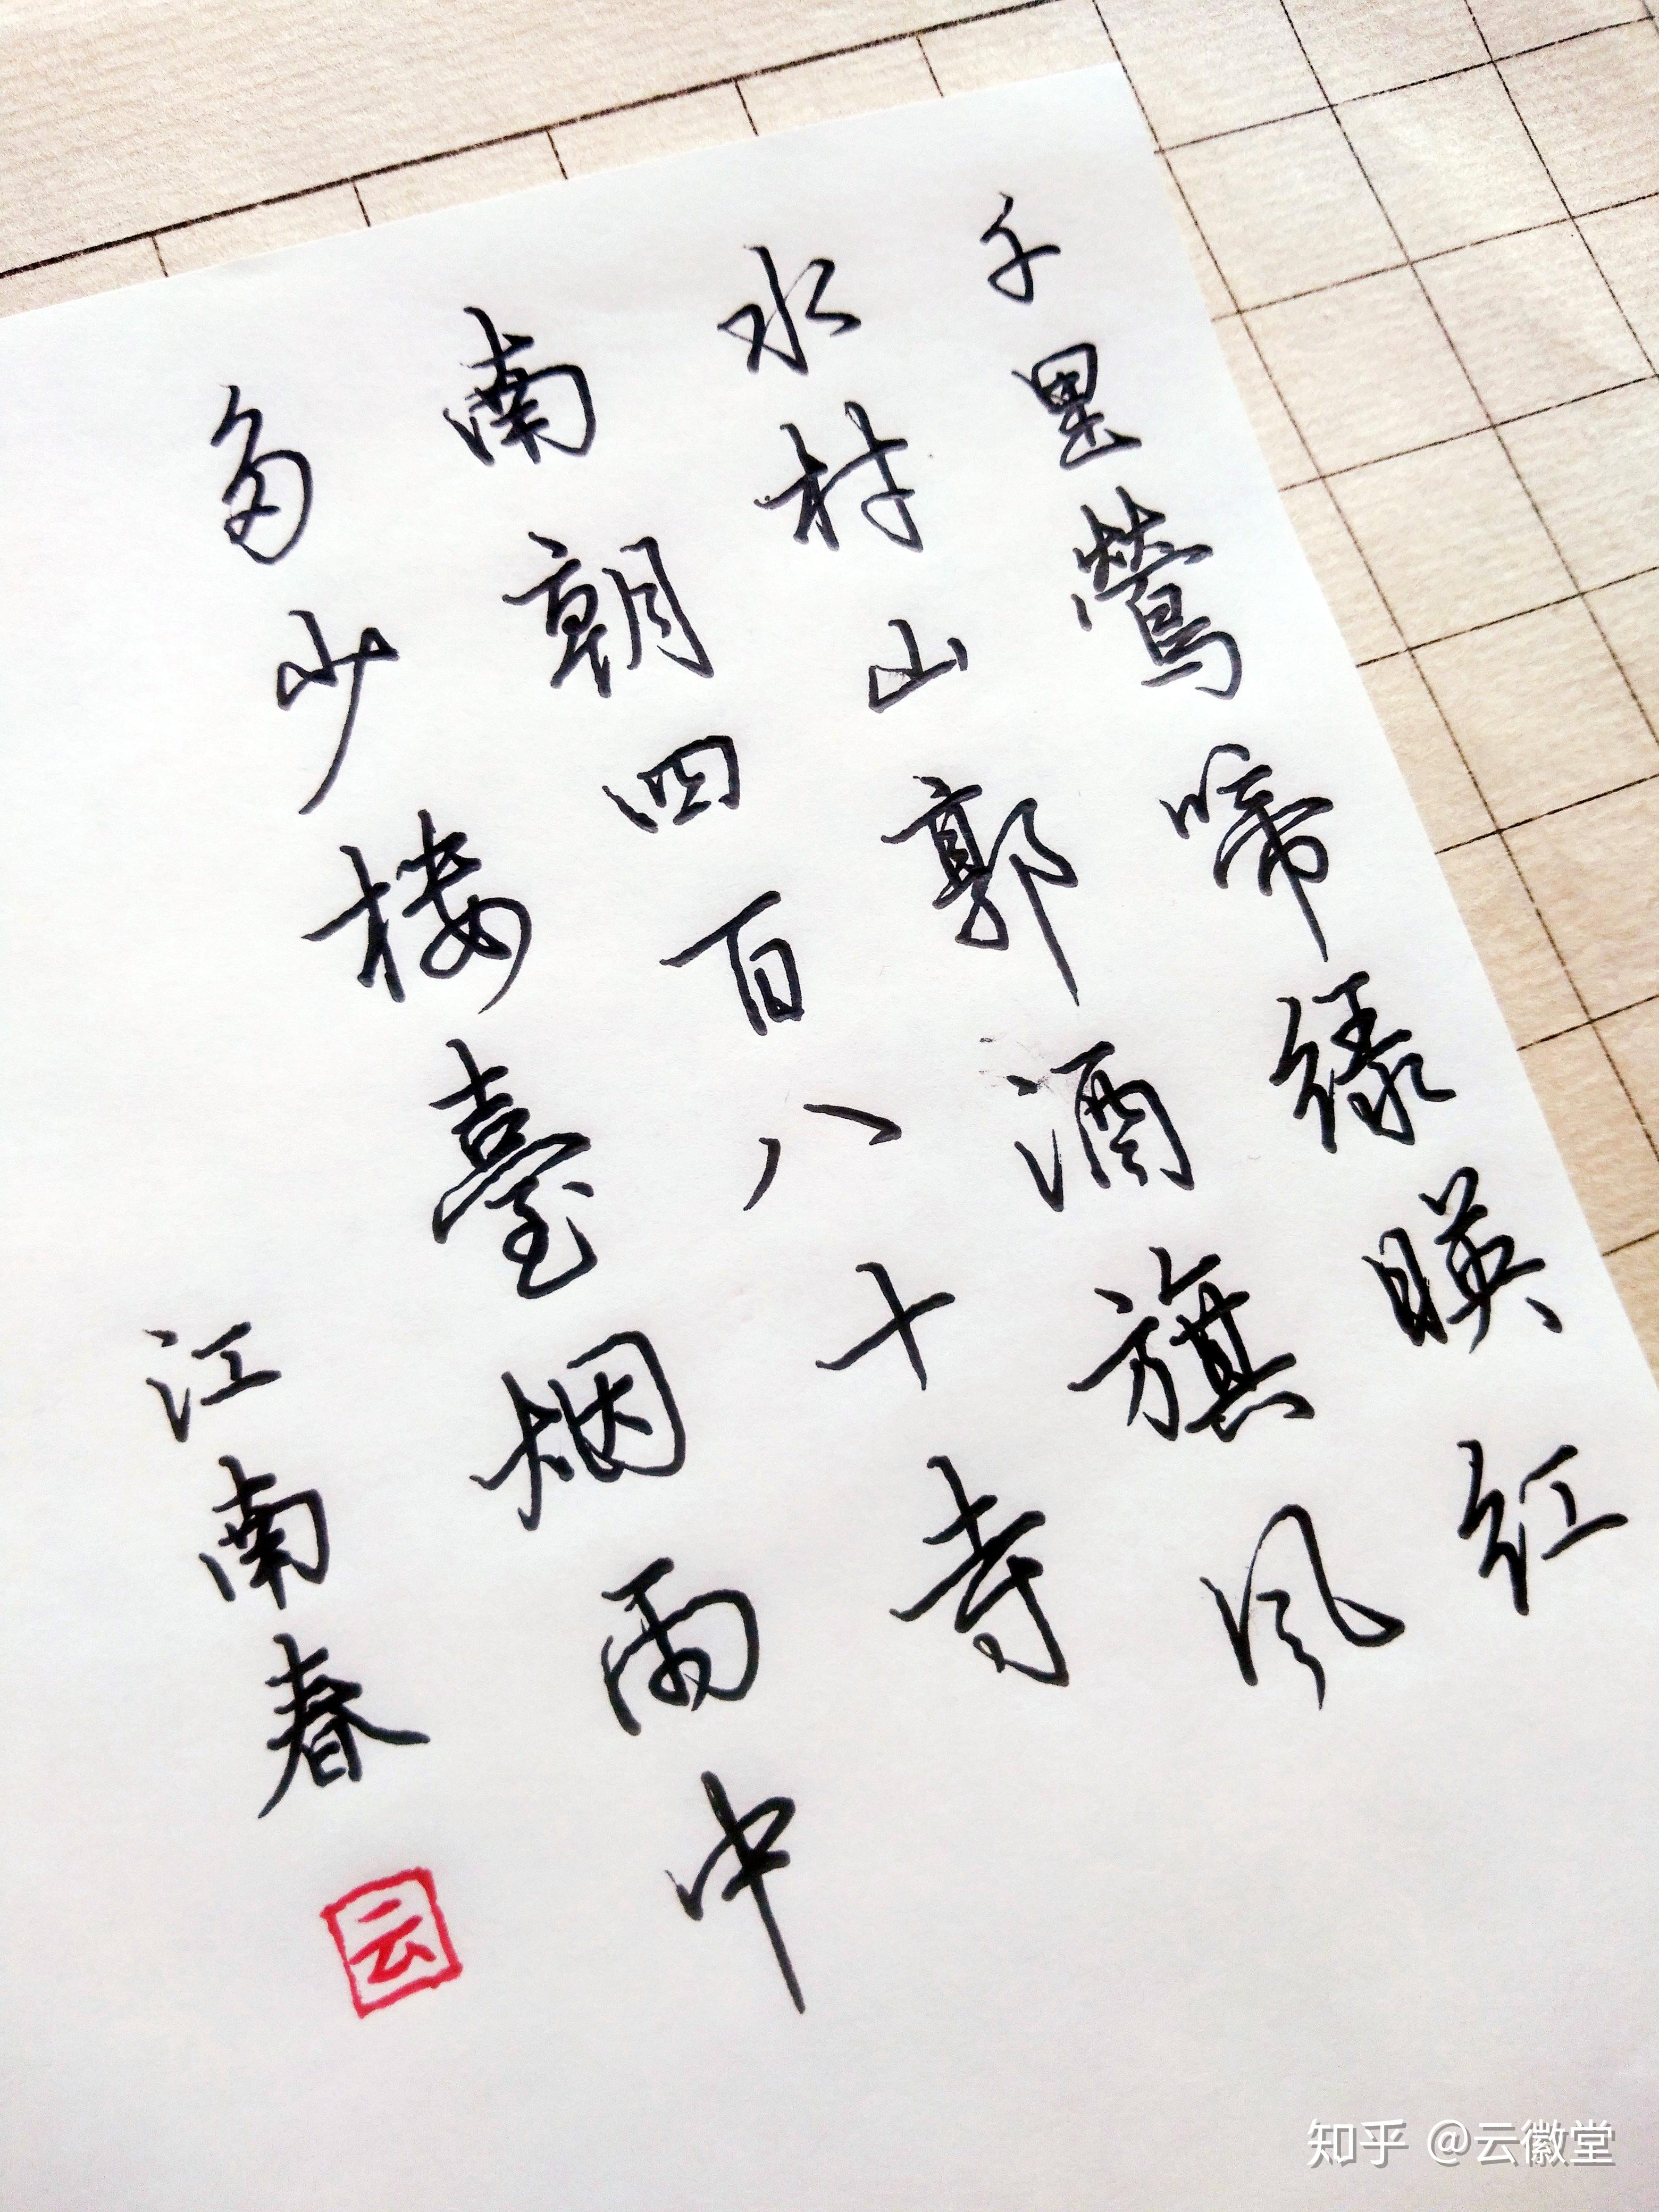 千里鶯啼緑暎紅
水村山郭酒旗風
南朝四百八十寺
多少楼臺烟雨中
江南春
云
知乎 @云徽堂